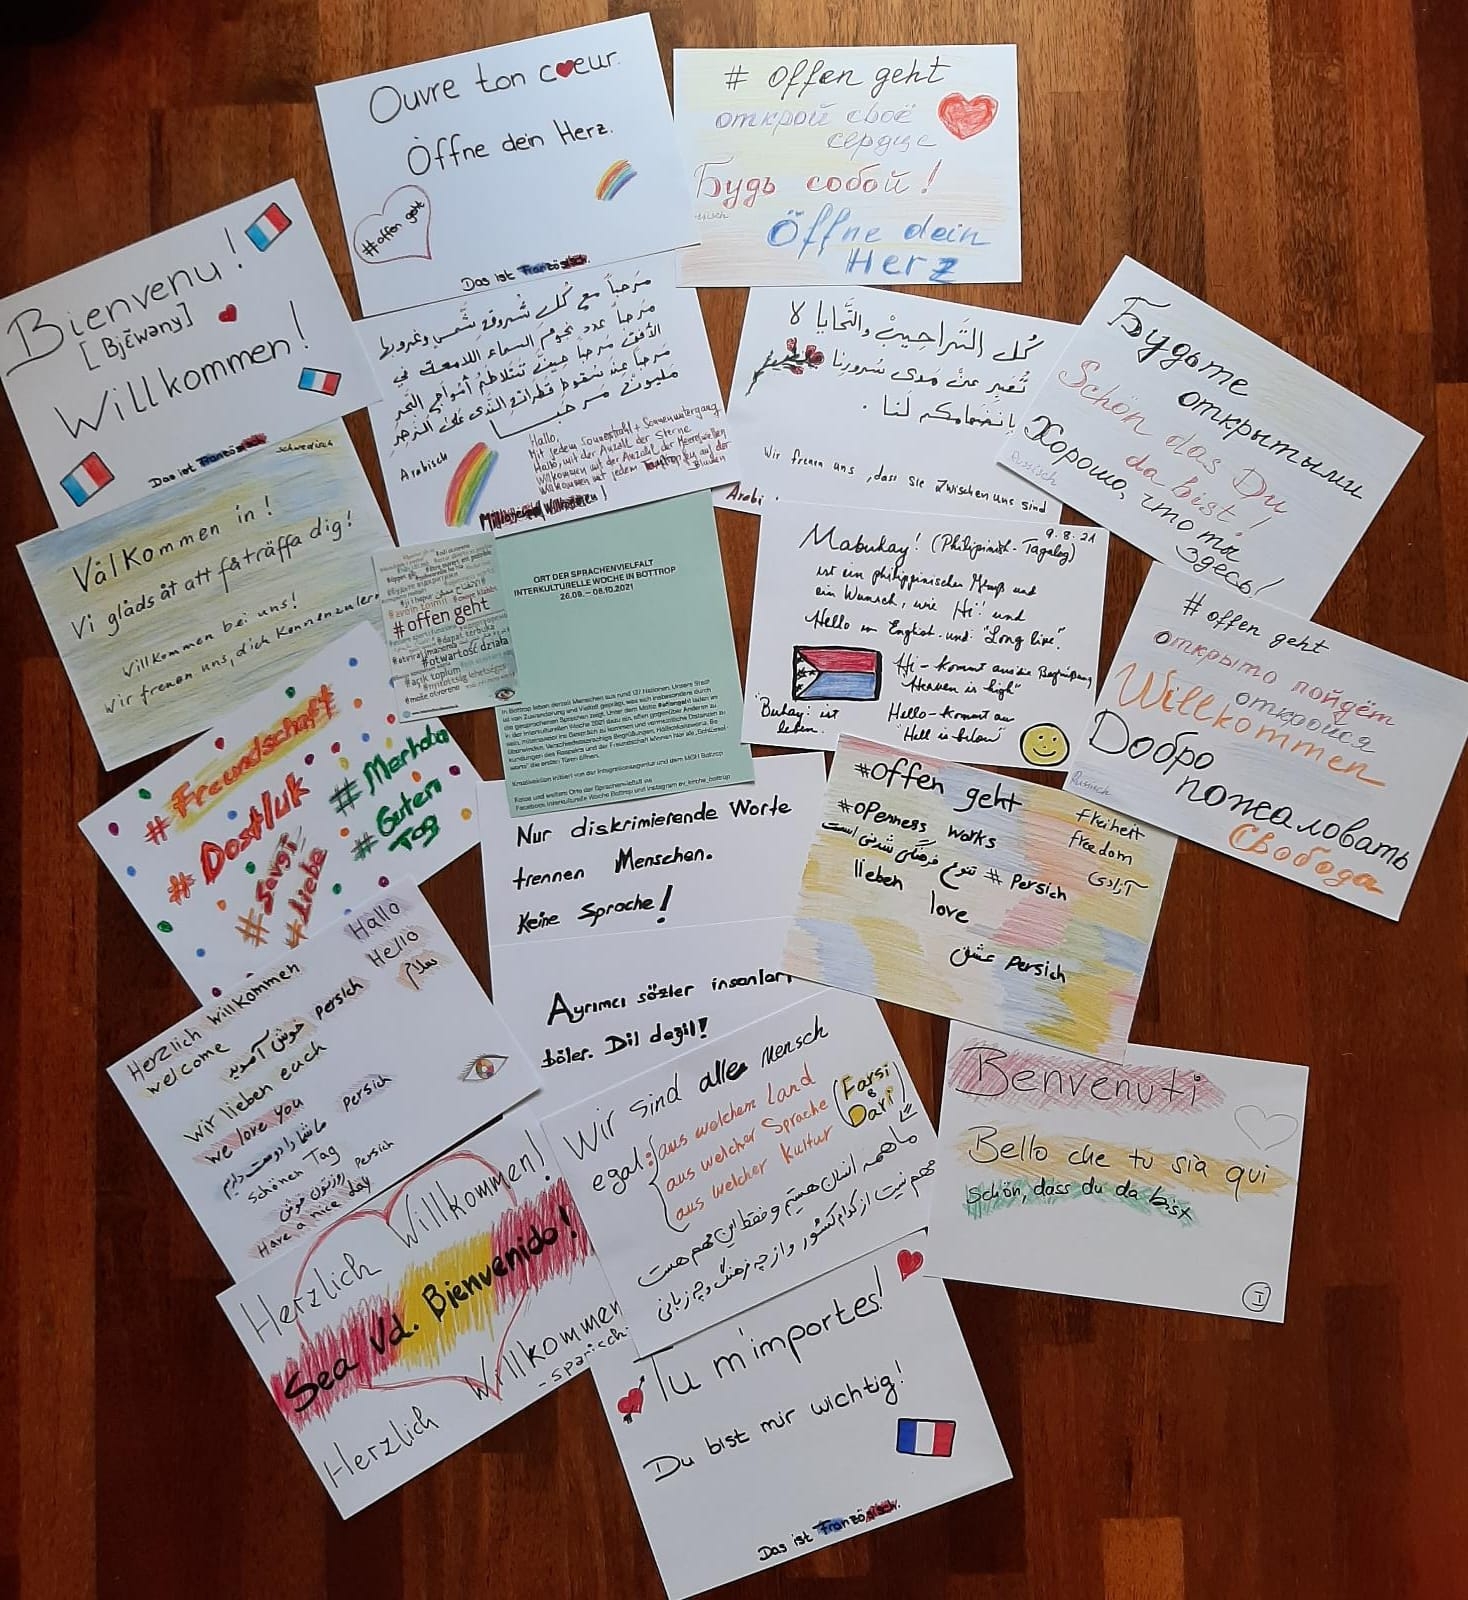 Ouvre ton cœur.
Öffne dein Herz.
#offen geht
Das ist Französisch.
# offen geht
открой своё
сердце
Будь собой!
Öffne dein
Herz
Bienvenu!
[Bjẽwəny]
Willkommen!
Das ist Französisch
مرحباً مع كل شروق شمس وغروب
مرحباً عدد نجوم السماء اللامعة في
الأفق مرحباً حينَ تتلاطم أمواج البحر
مرحباً عند سقوط قطرات الندى على الزهر
مليون مرحبا
Arabisch
Hallo,
Mit jedem Sonnenstrahl + Sonnenuntergang
Hallo, mit der Anzahl der Sterne
Willkommen mit der Anzahl der Meereswellen
Willkommen mit jedem auf der
Blumen
كل التراحيب والتحايا لا
تُعَبِر عن مَدى سُرورنا
بانضمامكم لنا.
Wir freuen uns, dass Sie zwischen uns sind
Arabi
Будьте
открытыми
Schön das Du
da bist!
Russisch
Хорошо, что ты
здесь!
schwedisch
Välkommen in!
Vi gläds åt att få träffa dig!
Willkommen bei uns!
Wir freuen uns, dich kennenzulern
#offen geht
#otwartość działa
#açık toplum
ORT DER SPRACHENVIELFALT
INTERKULTURELLE WOCHE IN BOTTROP
26.09. – 08.10.2021
In Bottrop leben derzeit Menschen aus rund 137 Nationen. Unsere Stadt
ist von Zuwanderung und Vielfalt geprägt, was sich insbesondere durch
die gesprochenen Sprachen zeigt. Unter dem Motto #offengeht laden wir
in der Interkulturellen Woche 2021 dazu ein, offen gegenüber Anderen zu
sein, miteinander ins Gespräch zu kommen und vermeintliche Distanzen zu
überwinden. Verschiedensprachige Begrüßungen,
kundungen des Respekts und der Freundschaft können hier als „Schlüssel-
worte“ die ersten Türen öffnen.
Kreativaktion initiiert von der Integrationsagentur und dem MGH Bottrop
Fotos und weitere Orte der Sprachenvielfalt via
Facebook Interkulturelle Woche Bottrop und Instagram ev_kirche_bottrop
9.8.21
Mabuhay! (Philipinish-Tagalog)
ist ein philippinischer Gruß und
ein Wunsch, wie "Hi" und
Hello in English und "Long live".
Hi - kommt aus die Begrüßung
"Heaven is high"
"Buhay" ist
leben.
Hello - kommt aus
"Hell is below"
# offen geht
открыто пойдём
откройся
Willkommen
Russisch
Добро
пожаловать
Свобода
# Freundschaft
# Dostluk
# Sevgi
# Liebe
# Merhaba
# Guten
Tag
Nur diskrimierende Worte
trennen Menschen.
Keine Sprache!
Ayrımcı sözler insanları
böler. Dil değil!
#offen geht
#openness works
تنوع فرهنگی شدنی است # Persich
lieben
love
عشق Persich
freiheit
freedom
آزادی
Hallo
Hello
سلام
Herzlich willkommen
welcome
خوش آمدید persich
wir lieben euch
we love you
ما شما را دوست داریم persich
schönen Tag
روزتون خوش persich
Have a nice day
Wir sind alle Mensch
egal: aus welchem Land
aus welcher Sprache
aus welcher Kultur
(Farsi
& Dari)
ما همه انسان هستیم و فقط این مهم هست
مهم نیست از کدام کشور و از چه فرهنگ و چه زبانی
Benvenuti
Bello che tu sia qui
Schön, dass du da bist
I
Herzlich Willkommen!
Sea Vd. Bienvenido!
Herzlich Willkommen
- spanisch-
Tu m'importes!
Du bist mir wichtig!
Das ist Französisch.